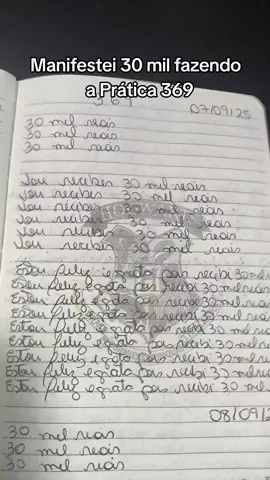 Manifestei 30 mil fazendo
a Prática 369
369
07/09/25
30 mil reais
30 mil reais
30 mil reais
Vou receber 30 mil reais
Vou receber 30 mil reais
Vou receber 30 mil reais
Vou receber 30 mil reais
Vou receber 30 mil reais
Vou receber 30 mil reais
Estou feliz e grata pois recebi 30 mil reais
Estou feliz e grata pois recebi 30 mil reais
Estou feliz e grata pois recebi 30 mil reais
Estou feliz e grata pois recebi 30 mil reais
Estou feliz e grata pois recebi 30 mil re
Estou feliz e grata pois recebi 30 mil re
Estou feliz e grata pois recebi 30 mil re
Estou feliz e grata pois recebi 30 mil re
Estou feliz e grata pois recebi 30 mil
08/09/2
30 mil reais
30 mil reais
30 mil reais